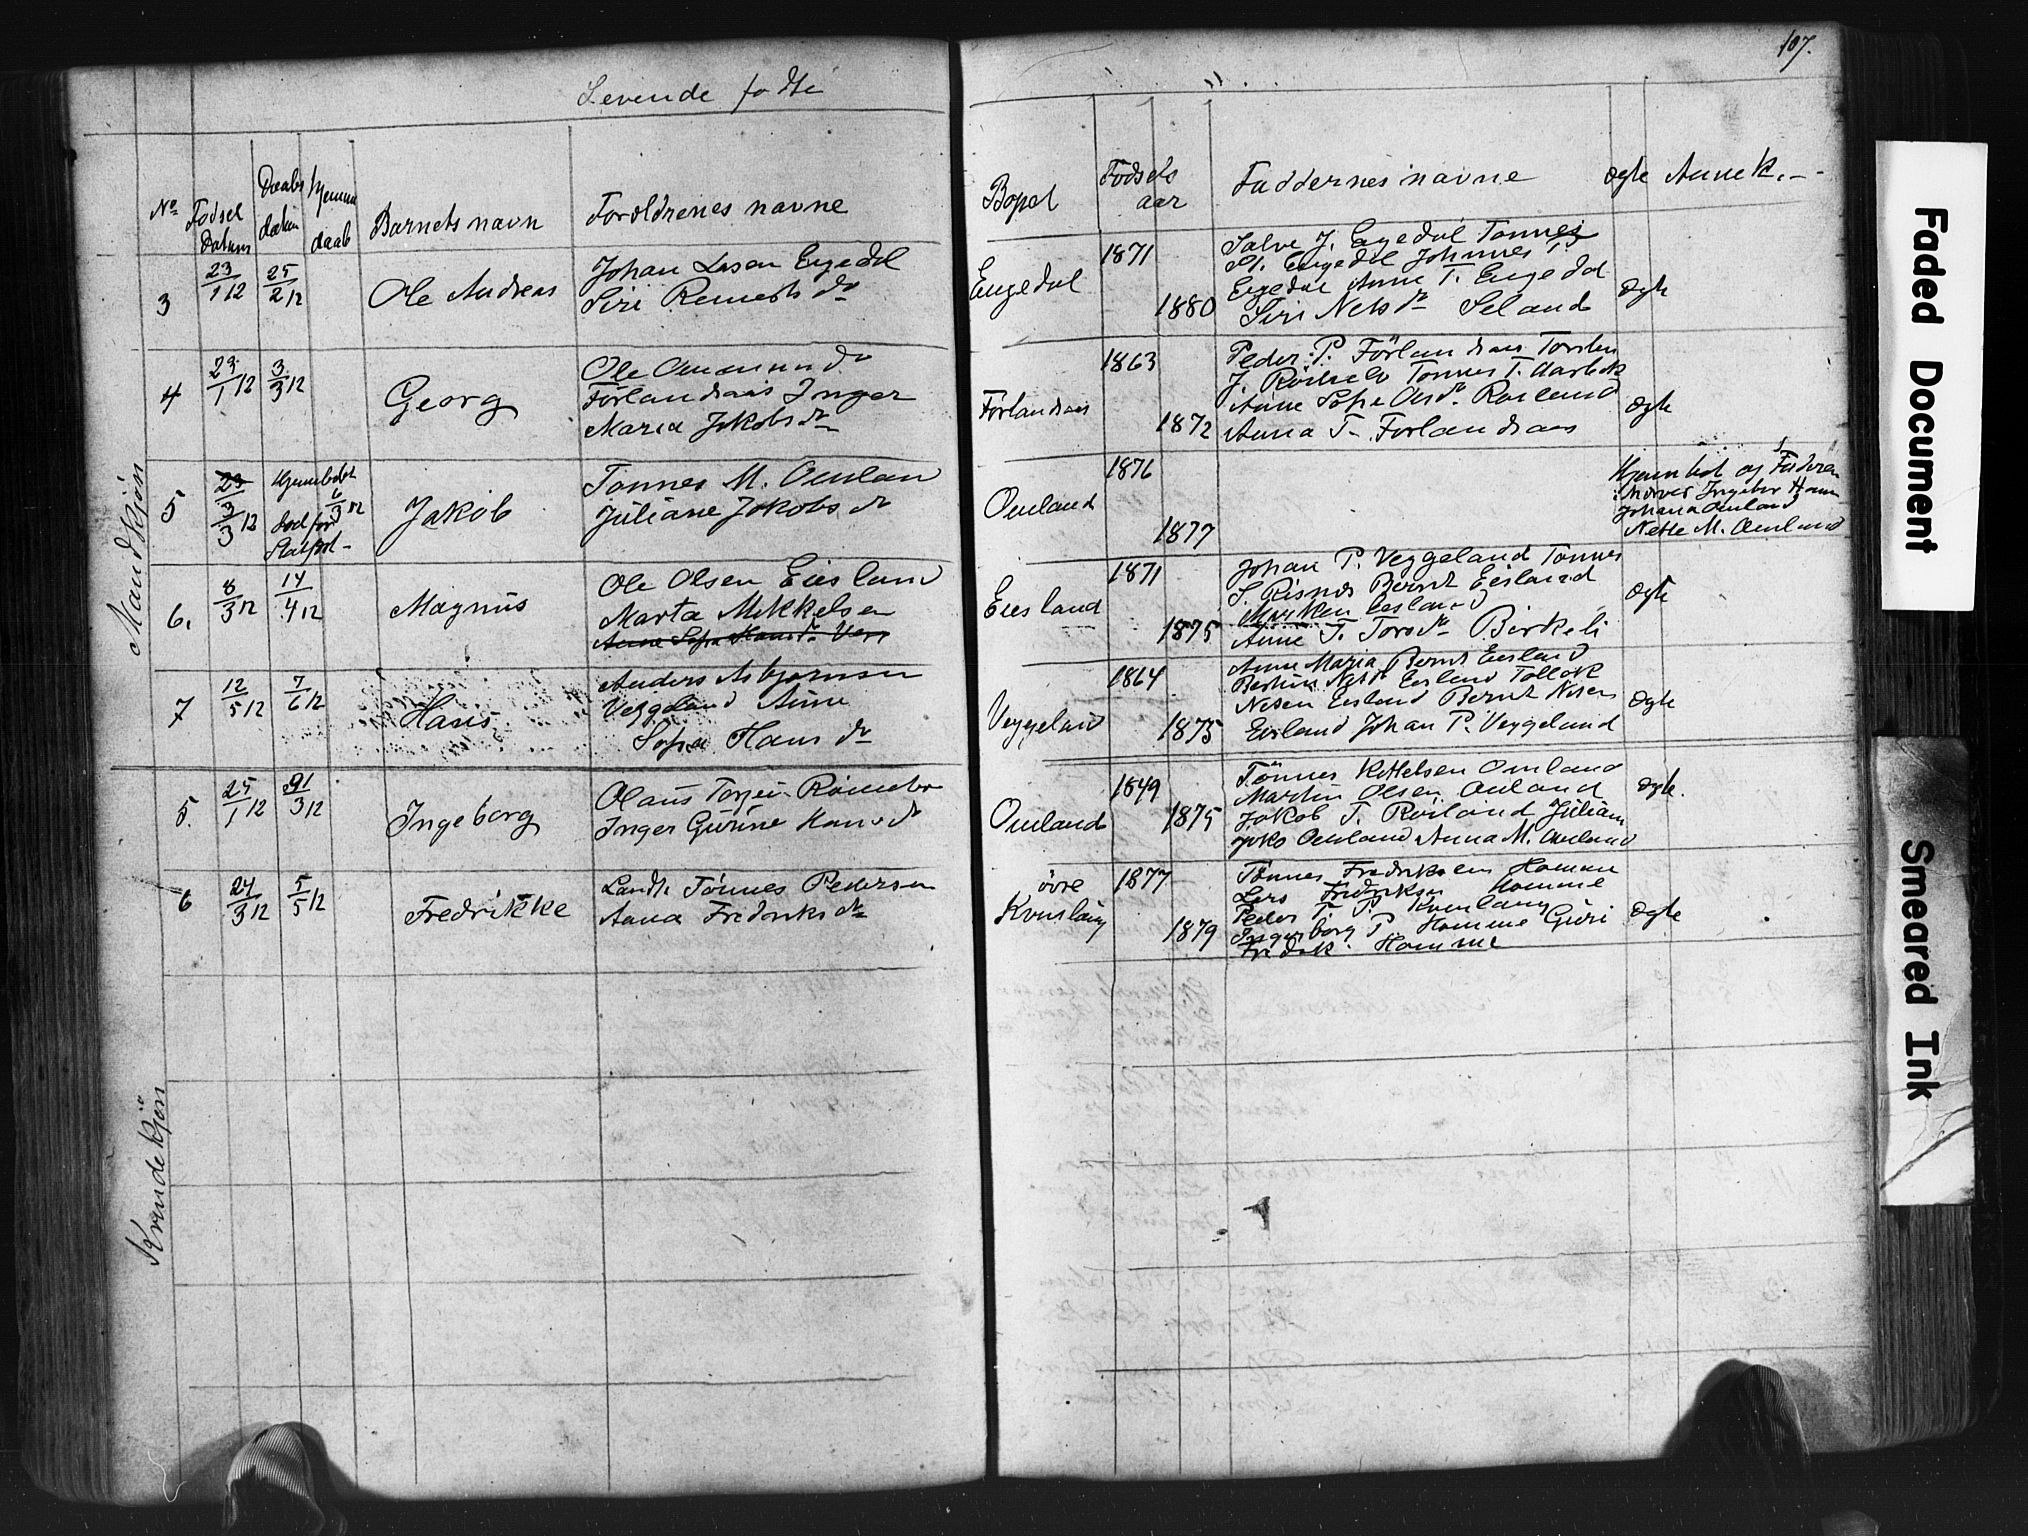 107.
Levende fødte
"
No
Fødsel datum
Daabs datum
Hjemme daab
Barnets navn
Forældrenes navne
Bopæl
Fødsels aar
Faddernes navne
Ægte
Anmek.
Mandkjøn
3
23/1 12
25/2 12
Ole Andreas
Johan Larsen Eigedal
Siri Reinerts dr
Engedal
1871
1880
Salve J. Engedal Tønnes
Engedal Johannes T.
Engedal Anne T. Engedal
Siri Nels dr Seland
Ægte
4
23/1 12
3/3 12
Georg
Ole Omund
Förlandsaas Inger
Maria Jakobs dr
Förlandsaas
1863
1872
Peder P. Förlandsaas Torsten
Tønnes T.
Anne Sofie Ols dr. Røiland
Anna T. Forlandsaas
Ægte
5
3/3 12
Hjemmedøbt
6/3 12
død før
Jakob
Tønnes M. Omland
Juliane Jakobs dr
Omland
1876
1877
Hjemdøbt og Faderen
Ingebor
Johana Omland
Nette M. Omland
6.
8/3 12
14/4 12
Magnus
Ole Olsen Eiesland
Marta Mikkelsen
Anne Sofie Hans dr Veg
Eiesland
1871
1875
Johan P. Veggeland Tønnes
S. Risnes Bernt Eiesland
Eiesland
Anne T. Tors dr Birkeli
Ægte
7
12/5 12
7/6 12
Hans
Anders Asbjørnsen
Veggeland Anne
Sofie Hans dr
Veggeland
1864
1875
Anne Maria Bernt Eiesland
Bertine Nels dr Eiesland Tollak
Nelsen Eiesland Bernt Nelsen
Eiesland Johan P. Veggeland
Ægte
Kvindekjøn
5.
25/1 12
31/3 12
Ingeborg
Olaus Torjei
Inger Gurine Hans dr
Omland
1849
1875
Tønnes Kittelsen Omland
Martin Olsen Omland
Jakob T. Røiland Julian
Joko Omland Anna M. Omland
Ægte.
6
24/3 12
5/5 12
Fredrikke
Landh. Tønnes Pedersen
Anna Fredriks dr
øvre
Kvinlaug
1877
1879
Tønnes Fredriksen Homme
Lars Fredriksen Homme
Peder T. P. Kvinlaug
Ingeborg P. Homme Guri
Fredrik. Homme
Ægte
Faded Document
Smeared Ink